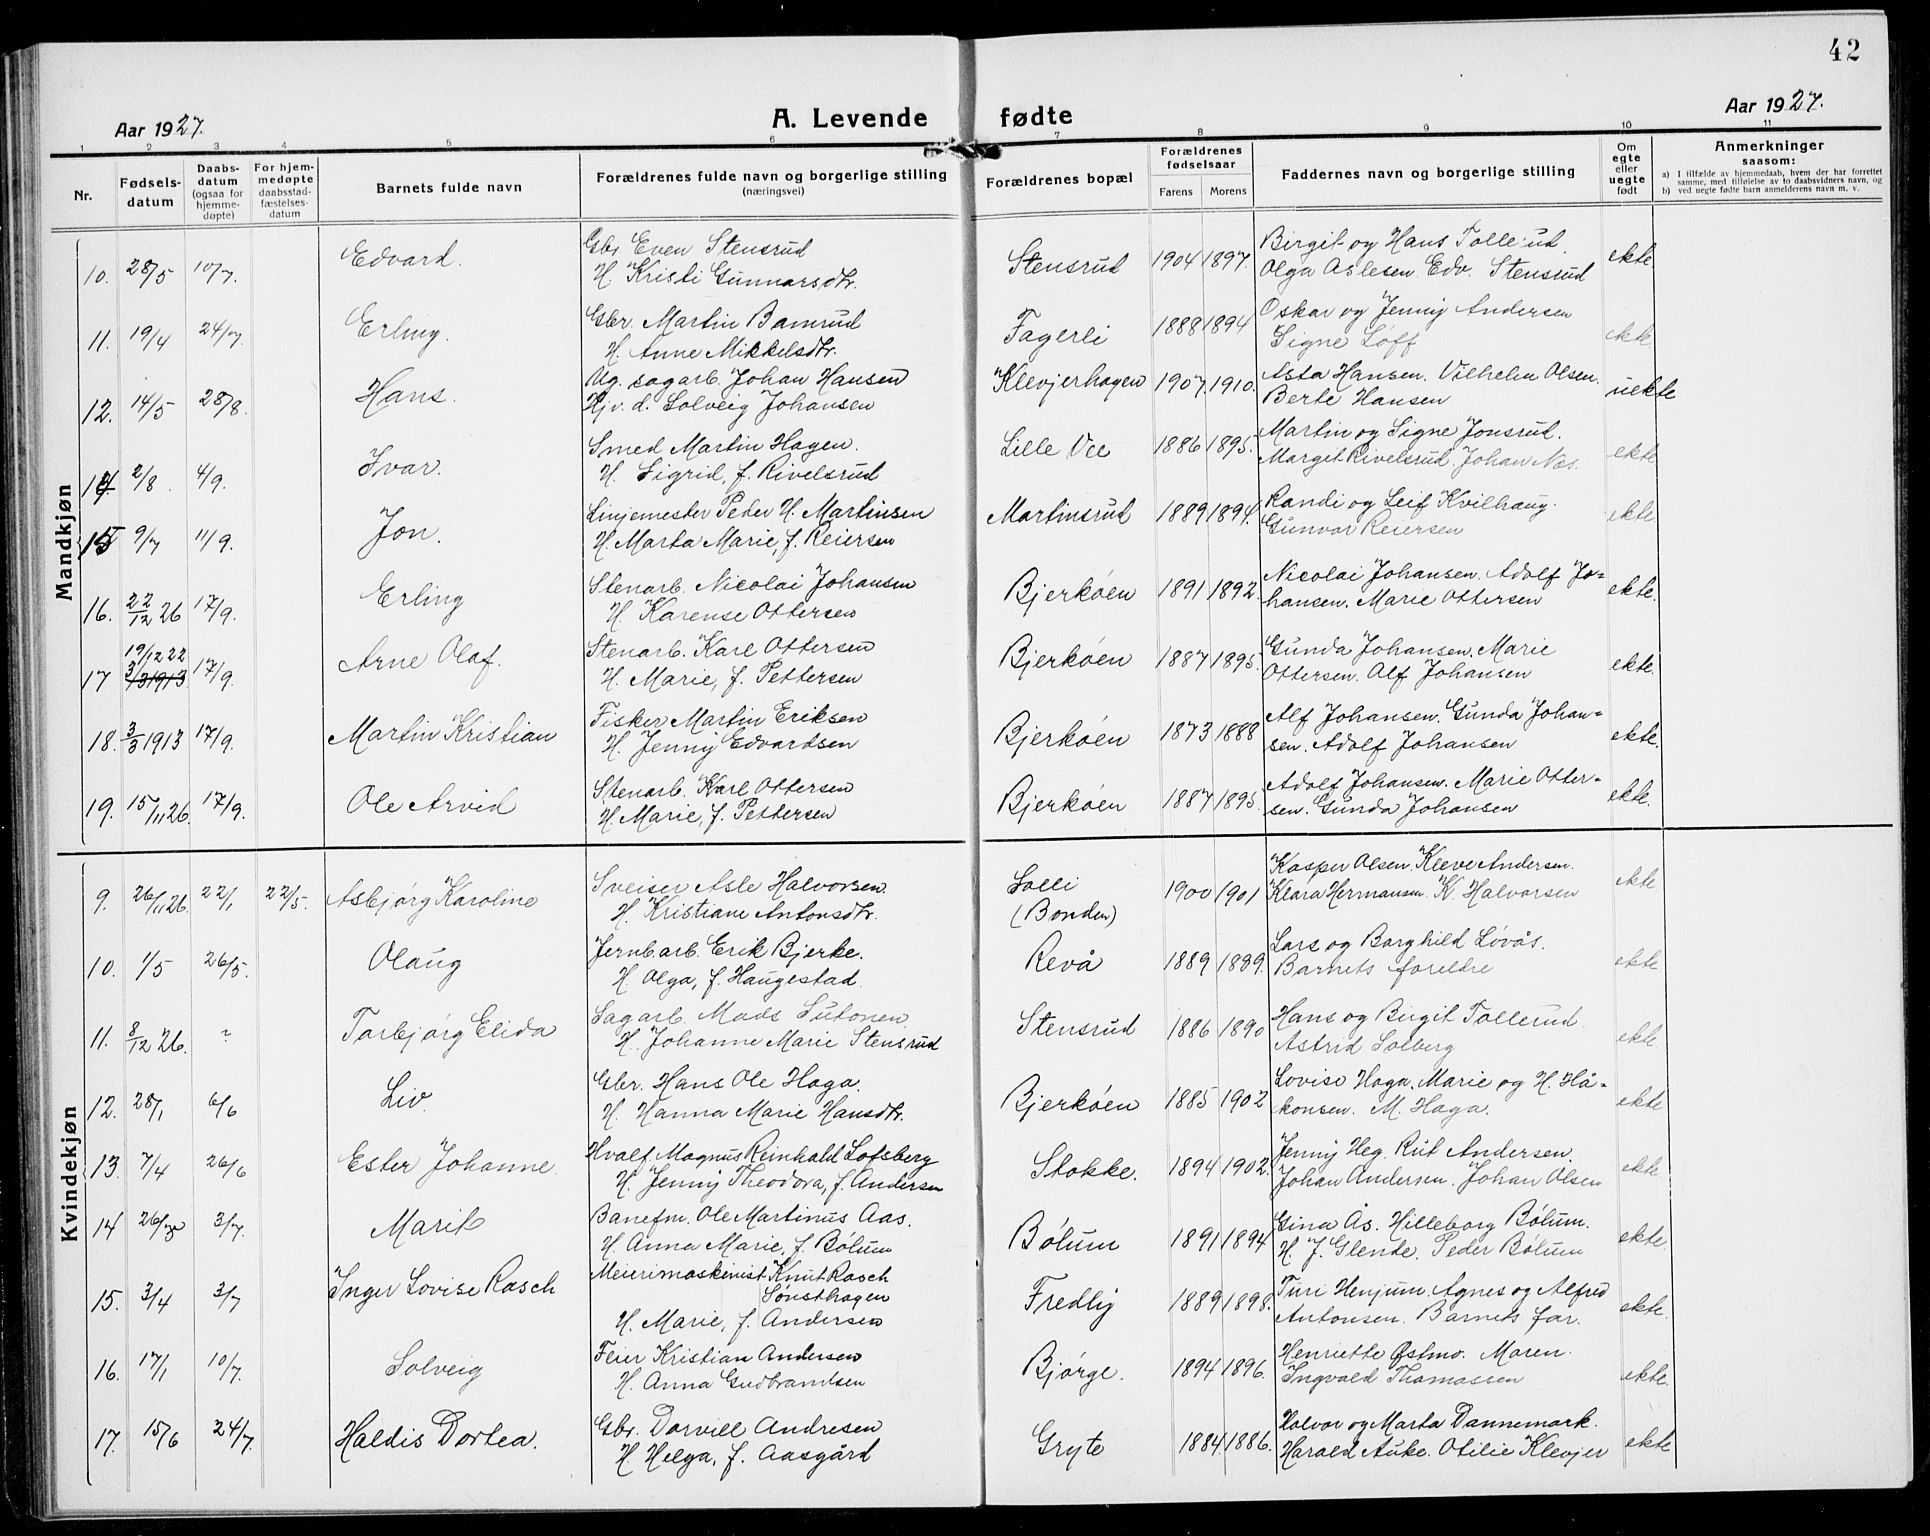 42
Aar 1927.
A. Levende fødte
Aar 1927.
1 2 3 4 5 6 7 8 9 10 11
Nr.
Fødsels-
datum
Daabs-
datum
(ogsaa for
hjemme-
døpte)
For hjem-
medøpte
daabsstad-
fæstelses-
datum
Barnets fulde navn
Forældrenes fulde navn og borgerlige stilling
(næringsvei)
Forældrenes bopæl
Forældrenes
fødselsaar
Farens Morens
Faddernes navn og borgerlige stilling
Om
egte
eller
uegte
født
Anmerkninger
saasom:
a) I tilfælde av hjemmedaab, hvem der har forrettet
samme, med tilføielse av to daabsvidners navn, og
b) ved uegte fødte barn anmelderens navn m. v.
Mandkjøn
10. 28/5 10/7. Edvard. Gbr Even Stensrud
H. Kristi Gunnarsdtr. Stensrud 1904 1897. Birgit og Hans Tollerud.
Olga Aslesen. Edv. Stensrud ekte.
11. 19/4 24/7. Erling. Gbr. Martin Bamrud
H. Anne Mikkelsdtr. Fagerli 1888 1894 Oskar og Jenny Andersen
Signe Løff ekte.
12. 14/5 28/8. Hans. Ug. sagarb. Johan Hansen
Hjv. d. Solveig Johansen Klevjerhagen 1907. 1910. Asta Hansen. Vilhelm Olsen.
Berte Hansen uekte
14. 2/8 4/9. Ivar. Smed Martin Hagen.
H. Sigrid, f. Rivelsrud Lille Vee 1886 1895. Martin og Signe Jonsrud.
Margit Rivelsrud. Johan Næs. ekte
15. 9/7 11/9. Jon. Linjemester Peder H. Martinsen
H. Marta Marie, f. Reiersen Martinsrud 1889 1894. Randi og Leif Kvilhaug.
Gunvor Reiersen ekte
16. 22/12 26 17/9. Erling Stenarb. Nicolai Johansen
H. Karense Ottersen Bjerkøen 1891 1892. Nicolai Johansen. Adolf Jo=
hansen. Marie Ottersen ekte.
17 19/12 22
3/3 1913 17/9. Arne Olaf. Stenarb. Karl Ottersen
H. Marie, f. Pettersen Bjerkøen 1887 1895. Gunda Johansen. Marie
Ottersen. Alf Johansen ekte.
18. 3/3 1913 17/9. Martin Kristian Fisker Martin Eriksen
H. Jenny Edvardsen Bjerkøen 1873 1888 Alf Johansen. Gunda Johan=
sen. Adolf Johansen ekte.
19. 15/11 26. 17/9. Ole Arvid Stenarb. Karl Ottersen
H. Marie, f. Pettersen Bjerkøen 1887 1895. Adolf Johansen. Marie Otter=
sen. Gunda Johansen ekte.
Kvindekjøn
9. 26/11 26. 22/1 22/5. Asbjørg Karoline Sveiser Asle Halvorsen.
H. Kristiane Antonsdtr. Solli
(Bonden) 1900 1901 Kasper Olsen. Kleve Andersen.
Klara Hermansen. K. Halvorsen ekte
10. 1/5 26/5. Olaug Jernb.arb. Erik Bjerke.
H. Olga, f. Haugestad. Revå 1889 1889. Lars og Borghild Løvås.
Barnets foreldre ekte
11. 8/12 26. ? Torbjørg Elida Sagarb. Mads Sutonen.
H. Johanne Marie Stensrud Stensrud 1886 1890 Hans og Birgit Tollerud.
Astrid Solberg ekte.
12. 28/1 6/6 Liv. Gbr. Hans Ole Haga.
H. Hanna Marie Hansdtr. Bjerkøen 1885 1902 Lovise Haga. Marie og H. Hå=
konsen. M. Haga. ekte
13. 7/4 26/6 Ester Johanne. Hvalf. Magnus Reinhold Lofsberg
H. Jenny Theodora, f. Andersen Stokke. 1894 1902. Jenny Heg. Rut Andersen.
Johan Andersen. Johan Olsen ekte
14 26/3 3/7. Marit Banefm. Ole Martinus Aas.
H. Anna Marie, f. Bølum Bølum 1891 1894 Gina Ås. Hilleborg Bølum.
H. J. Glende. Peder Bølum ekte.
15. 3/4 3/7 Inger Lovise Rasch Meierimaskinist Knut Rasch
Sønsthagen
H. Marie, f. Andersen Fredly 1889 1898. Turi Henjum. Agnes og Alfred
Antonsen. Barnets far. ekte.
16. 17/1 10/7. Solveig Feier Kristian Andersen
H. Anna Gudbrandsen Bjørge. 1894 1896. Henriette Østmo. Maren.
Ingvald Thomassen ekte.
17. 15/6 24/7 Haldis Dortea. Gbr. Dorvill Andresen
H Helga, f. Aasgård Gryte 1884 1886. Halvor og Marta Dannemark.
Harald Auke. Otilie Klevjer ekte